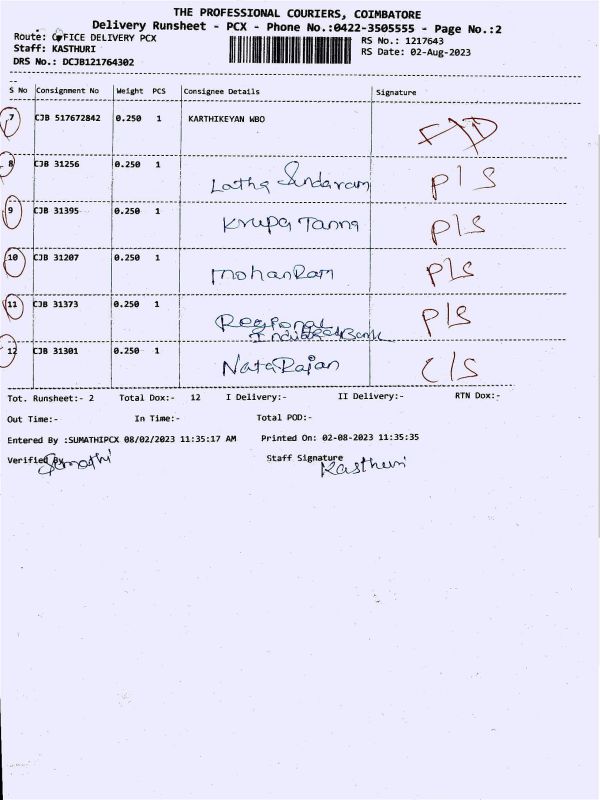 THE PROFESSIONAL COURIERS, COIMBATORE
Delivery Runsheet - PCX - Phone No.:0422-3505555 - Page No.:2
Route: OFFICE DELIVERY PCX RS No.: 1217643
Staff: KASTHURI RS Date: 02-Aug-2023
DRS No.: DCJB121764302
S No Consignment No Weight PCS Consignee Details Signature
7 CJB 517672842 0.250 1 KARTHIKEYAN WBO
8 CJB 31256 0.250 1 Latha Sundaram P/S
9 CJB 31395 0.250 1 Krupa Tanna P/S
10 CJB 31207 0.250 1 MohanRam P/S
11 CJB 31373 0.250 1 Regional P/S
Bank
12 CJB 31301 0.250 1 NataRajan C/S
Tot. Runsheet:- 2 Total Dox:- 12 I Delivery:- II Delivery:- RTN Dox:-
Out Time:- In Time:- Total POD:-
Entered By :SUMATHIPCX 08/02/2023 11:35:17 AM Printed On: 02-08-2023 11:35:35
Verified By Sumathi Staff Signature Kasthuri